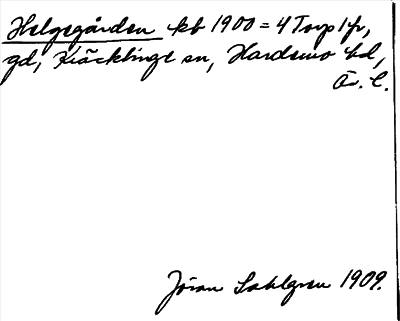 Helgegården kb 1900 = 4 Torp 1 fr,
gd, Kräcklinge sn, Hardemo hd,
Ör. l.
Jöran Sahlgren 1909.